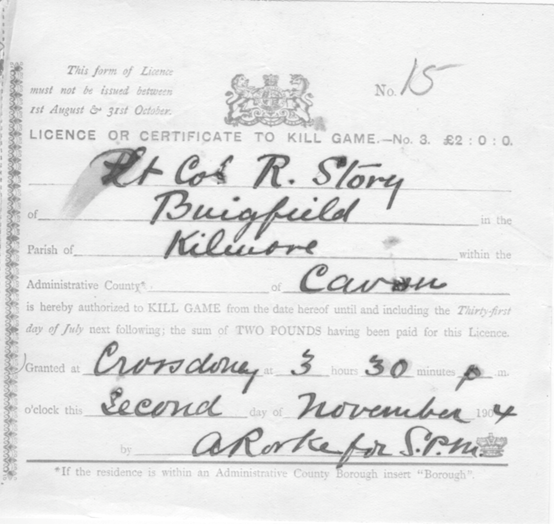 This form of Licence
must not be issued between
1st August & 31st October.
No. 15
LICENCE OR CERTIFICATE TO KILL GAME.—No. 3. £2 : 0 : 0.
Lt Col R. Story
of Buigfield in the
Parish of Kilmore within the
Administrative County* of Cavan
is hereby authorized to KILL GAME from the date hereof until and including the Thirty-first
day of July next following; the sum of TWO POUNDS having been paid for this Licence.
Granted at Crossdoney at 3 hours 30 minutes p.m.
o'clock this Second day of November 1904
by A Rorke for S.P.M.
*If the residence is within an Administrative County Borough insert "Borough".